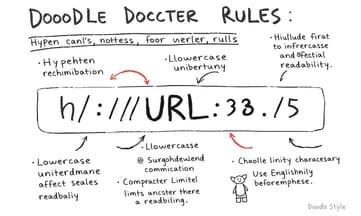 DOOODLE DOCCTER RULES:
Hypen canl's, nottess, foor verler, rulls
• Hy pehten
rechimibation
• Llowercase
unibertuny
• Hiullude firat
to infrercasse
and Ofectial
readability.
h/:///URL:33./5
• Lowercase
uniterdmane
affect seales
readbaliy
• Llowercasse
@ Surgohdewlend
commication
• Compracter Limitel
limts ancster there
a readbiling.
• Chaolle linity characesary
Use Englishnily
beforemphese.
Doodle Style